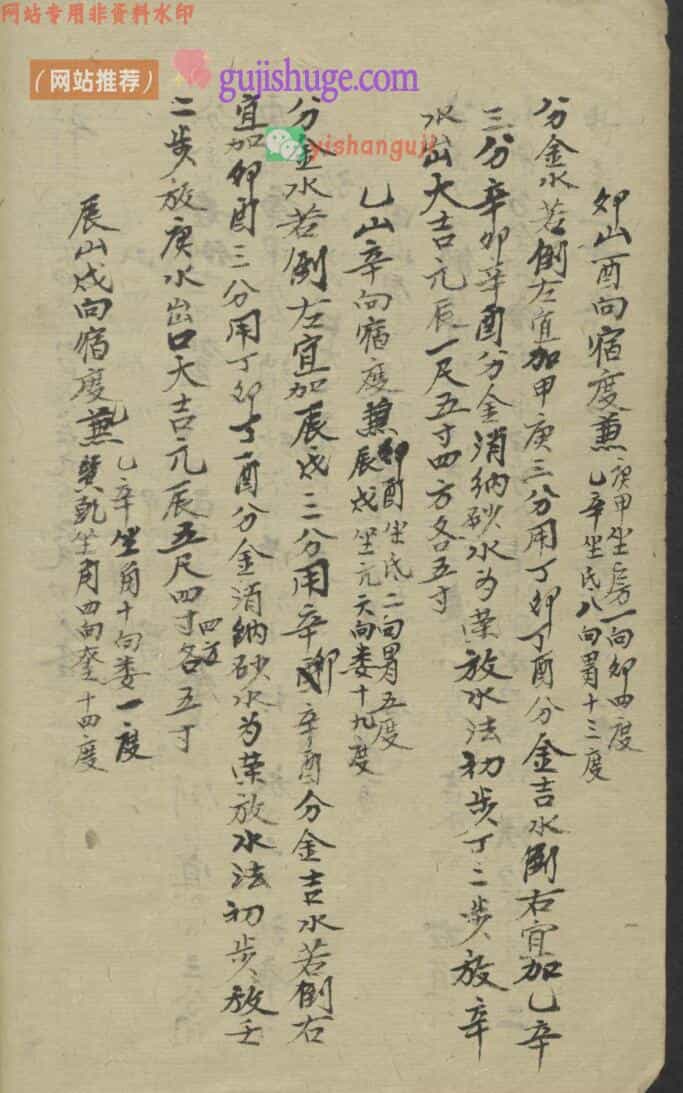 网站专用非资料水印
(网站推荐)
gujishuge.com
yishanguji
卯山酉向宿度兼庚甲坐房一向卯四度
乙辛坐氐八向胃十三度
分金水若倒左宜加甲庚三分用丁卯丁酉分金吉水倒右宜加乙辛
三分辛卯辛酉分金消纳砂水为荣放水法初步丁二步放辛
水出大吉元辰一尺五寸四方各五寸
乙山辛向宿度兼卯酉坐氐二向胃五度
辰戌坐亢六向娄十九度
分金水若倒左宜加辰戌三分用辛卯辛酉分金吉水若倒右
宜加卯酉三分用丁卯丁酉分金消纳砂水为荣放水法初步放壬
二步放庚水出口大吉元辰五尺四寸四方各五寸
辰山戌向宿度兼乙辛坐角十向娄一度
巽乾坐角四向奎十四度